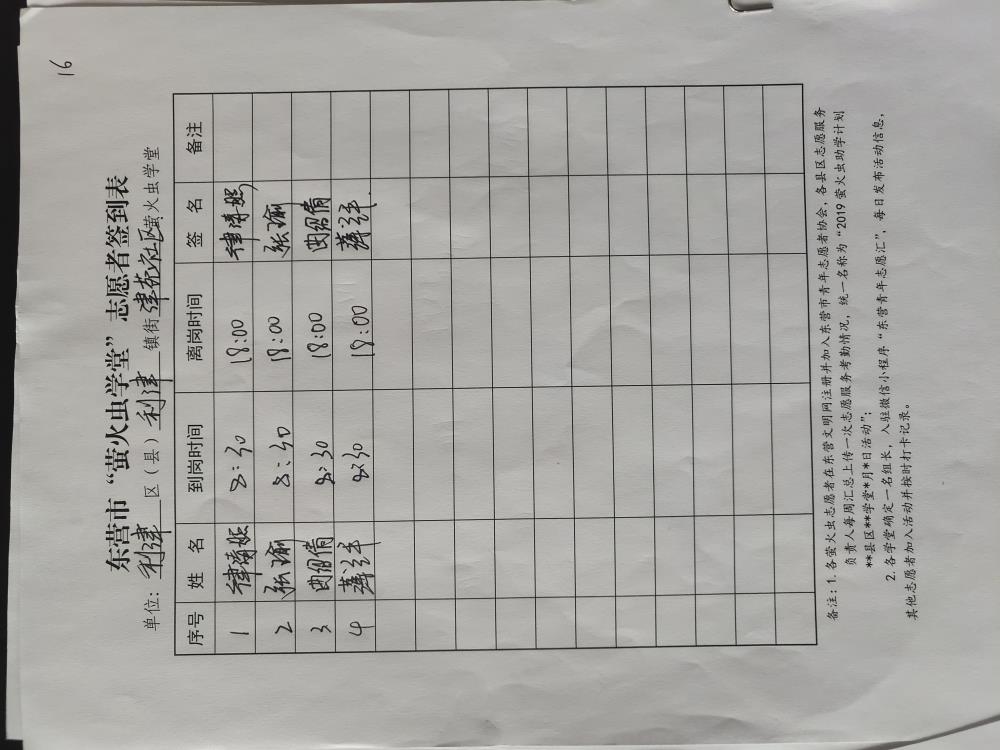 16
东营市“萤火虫学堂”志愿者签到表
单位：利津区（县）利津镇街津苑社区萤火虫学堂
序号 姓 名 到岗时间 离岗时间 签 名 备注
1 8:30 18:00
2 张瑜 8:30 18:00 张瑜
3 曲绍倩 8:30 18:00 曲绍倩
4 8:30 18:00
备注：1.各萤火虫志愿者在东营文明网注册并加入东营市青年志愿者协会，各县区志愿服务
负责人每周汇总上传一次志愿服务考勤情况，统一名称为“2019萤火虫助学计划
**县区**学堂*月*日活动”；
2.各学堂确定一名组长，入驻微信小程序“东营青年志愿汇”，每日发布活动信息，
其他志愿者加入活动并按时打卡记录。